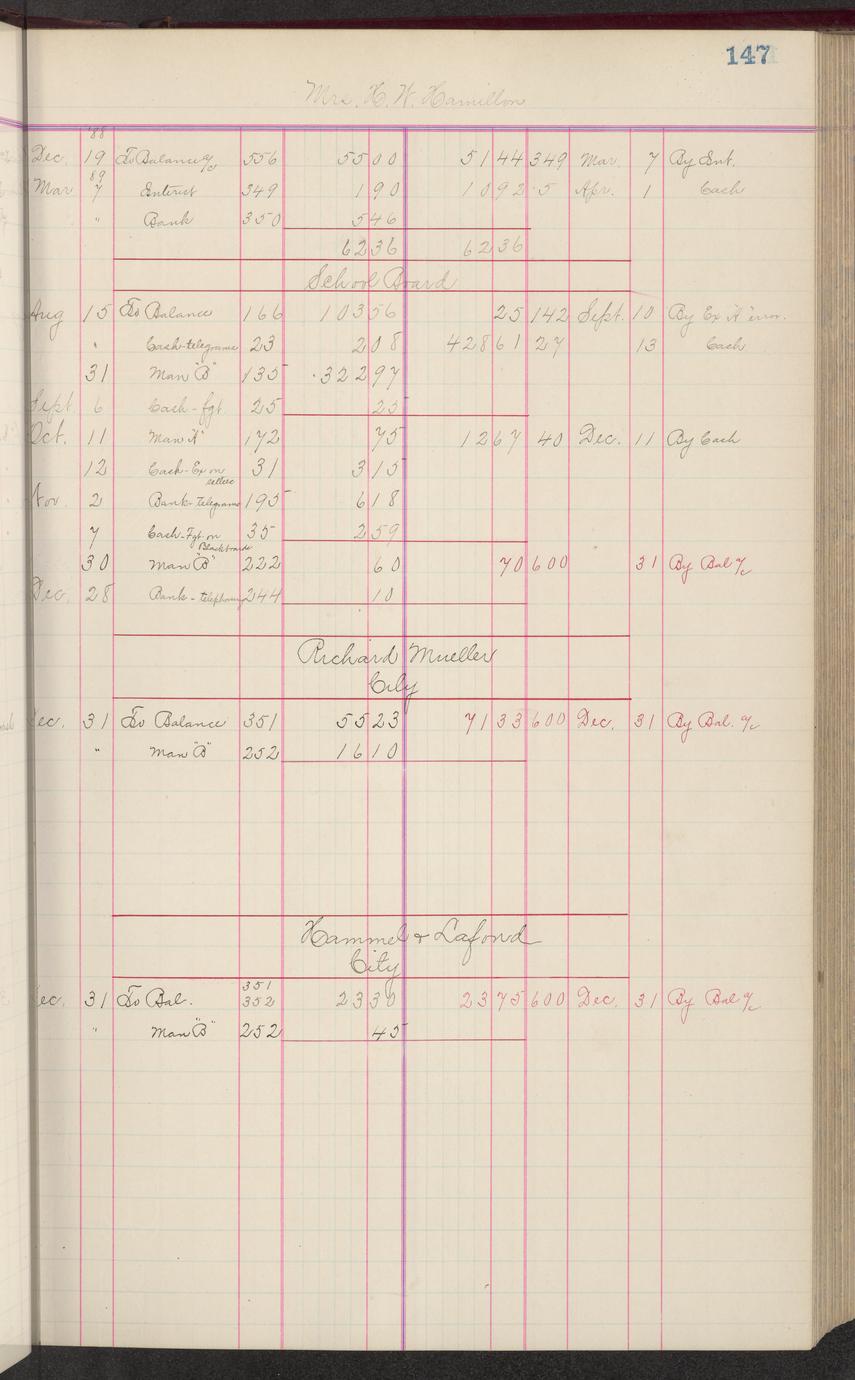 147
Mrs. H. W. Hamilton
'88
Dec. 19 To Balance a/c 556 55 00 51 44 349 Mar. 7 By Int.
89
Mar 7 Interest 349 1 90 10 92 5 Apr. 1 Cash
" Bank 350 5 46
62 36 62 36
School Board
Aug 15 To Balance 166 103 56 25 142 Sept. 10 By Ex "A" error.
" Cash-telegrams 23 2 08 428 61 27 13 Cash
31 Man "B" 135 322 97
Sept 6 Cash-fgt. 25 25
Oct. 11 Man "A" 172 75 12 67 40 Dec. 11 By Cash
12 Cash-Ex on 31 3 15
Nov. 2 Bank-telegrams 195 6 18
7 Cash-Fgt. on 35 2 59
Blackboards
30 Man "B" 222 60 70 600 31 By Bal a/c
Dec. 28 Bank - telephone 244 10
Richard Mueller
City
Dec. 31 To Balance 351 55 23 71 33 600 Dec. 31 By Bal. a/c
" Man "B" 252 16 10
Hammel & Lafond
City
351
Dec. 31 To Bal. 352 23 30 23 75 600 Dec. 31 By Bal a/c
" Man "B" 252 45